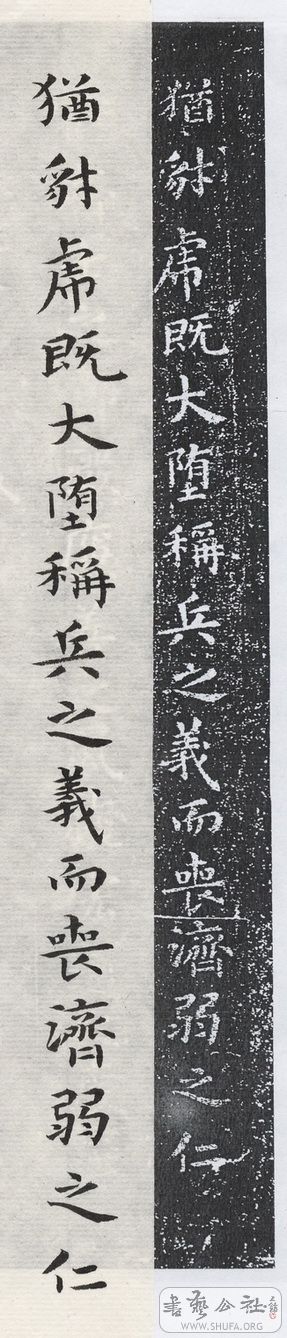 猶豺虎既大堕稱兵之義而喪濟弱之仁
猶豺虎既大堕稱兵之義而喪濟弱之仁
書藝公社
WWW.SHUFA.ORG